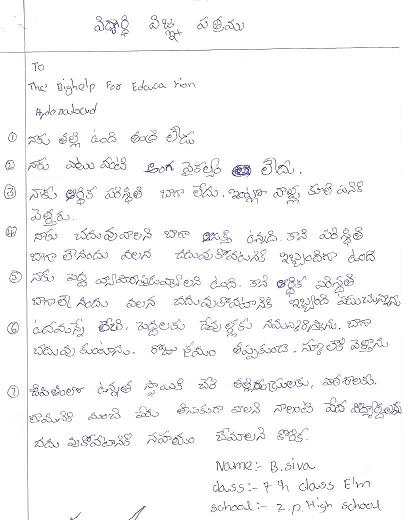 విద్యార్థి విజ్ఞ పత్రము
To
The Bighelp For Education
Hyderabad
① నాకు తల్లి ఉంది తండ్రి లేడు
② నాకు ఎటువంటి అంగ వైకల్యం లేదు.
③ నాకు ఆర్థిక పరిస్థితి బాగా లేదు. ఇంట్లో వాళ్ళు కూలి పనికి
వెళ్తారు.
④ నాకు చదువుకోవాలని బాగా ఆసక్తి ఉన్నది. కాని పరిస్థితి
బాగా లేనందు వలన చదువుకోవటానికి ఇబ్బందిగా ఉంది
⑤ నాకు పెద్ద ఉంది. కాని ఆర్థిక పరిస్థితి
బాగా లేనందు వలన చదువుకోవటానికి ఇబ్బంది పడుచున్నాను
⑥ ఉదయాన్నే లేచి. పెద్దలకు దేవుళ్లకు నమస్కరిస్తాను. బాగా
చదువుకుంటాను. రోజు క్రమం తప్పకుండ. స్కూలుకి వెళ్తాను
⑦ జీవితంలో ఉన్నత స్థాయికి చేరి తల్లిదండ్రులకు, పాఠశాలకు.
గ్రామానికి మంచి పేరు తీసుకురావాలని నాలాంటి పేద విద్యార్థులకు
చదువుకోవటానికి సహాయం చేయాలని కోరిక.
Name:- B.siva
class:- 7th class E/m
school:- Z.p. High school